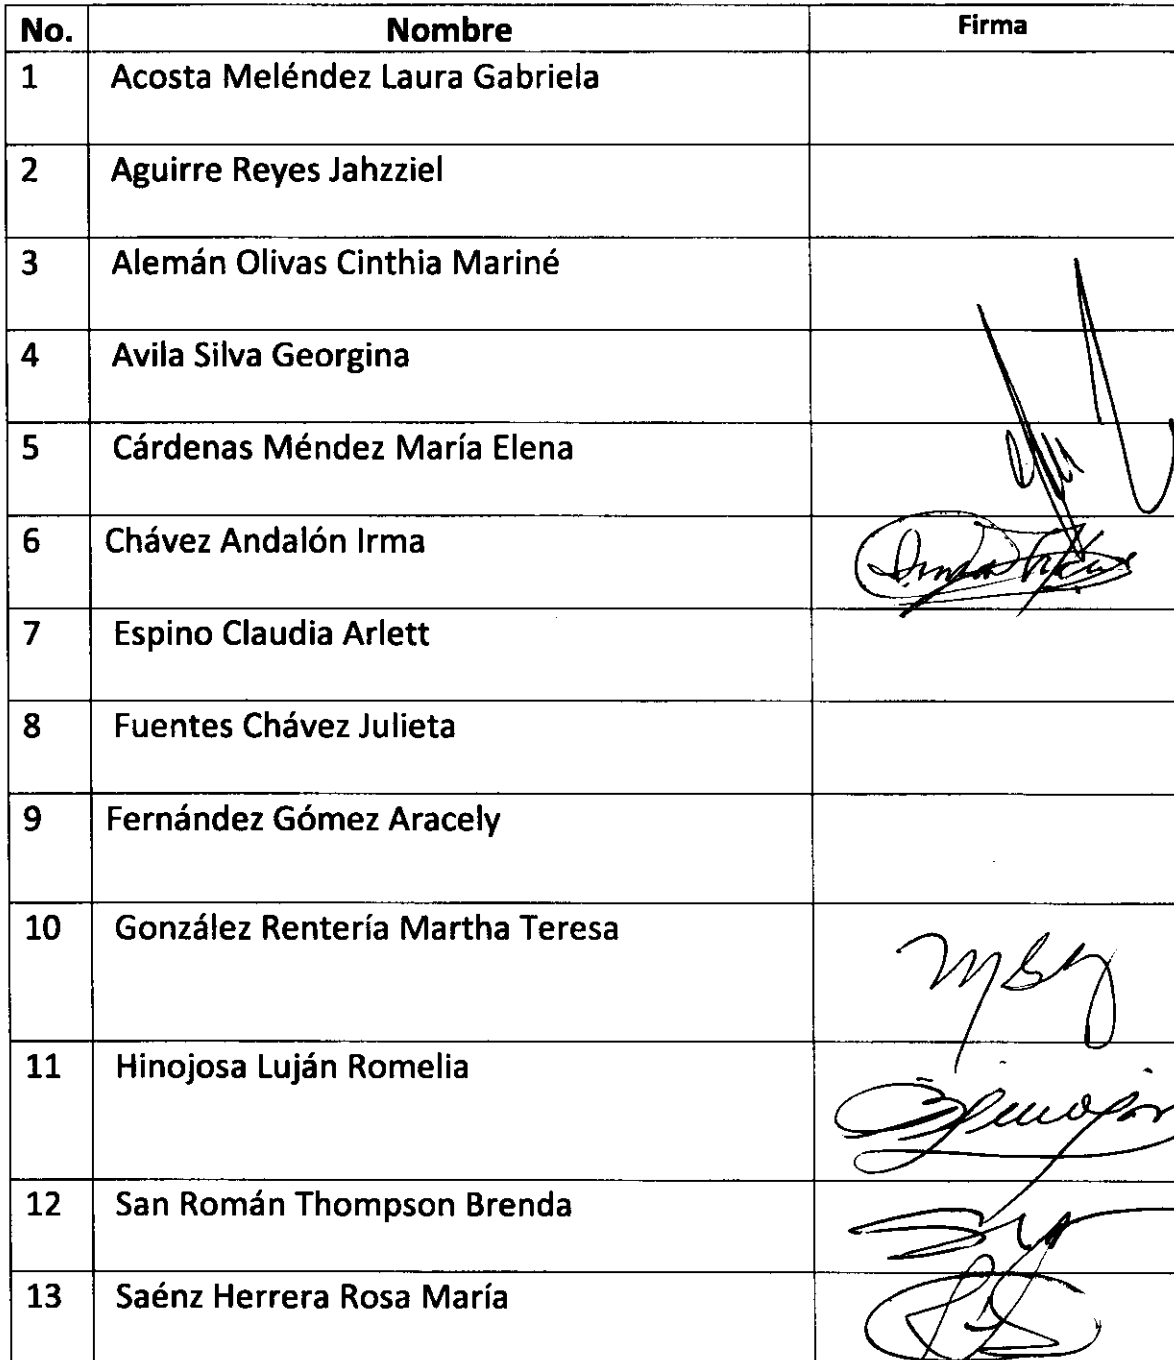 No. Nombre Firma
1 Acosta Meléndez Laura Gabriela
2 Aguirre Reyes Jahzziel
3 Alemán Olivas Cinthia Mariné
4 Avila Silva Georgina
5 Cárdenas Méndez María Elena
6 Chávez Andalón Irma
7 Espino Claudia Arlett
8 Fuentes Chávez Julieta
9 Fernández Gómez Aracely
10 González Rentería Martha Teresa
11 Hinojosa Luján Romelia
12 San Román Thompson Brenda
13 Saénz Herrera Rosa María